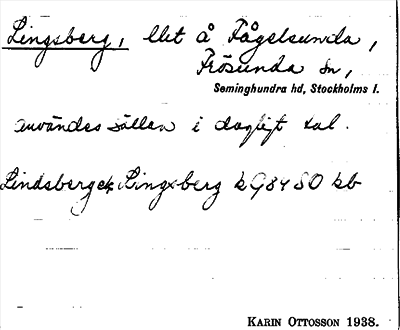 Lingsberg, llet å Fågelsunda,
Frösunda sn,
Seminghundra hd, Stockholms l.
användes sällan i dagligt tal.
Lindsberg ek Lingsberg k G84 SO kb
KARIN OTTOSSON 1938.